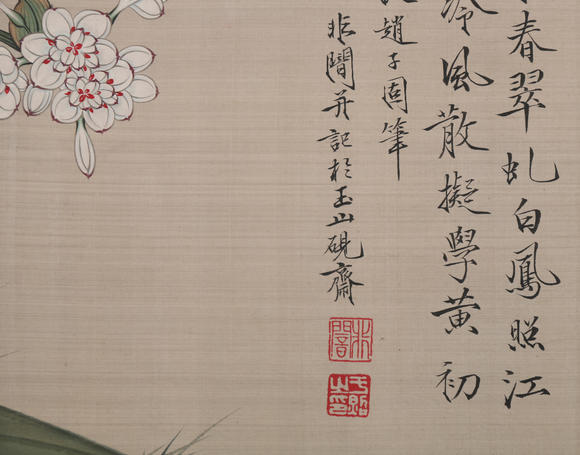 春翠虬白鳳照江
冷風散擬學黃初
趙子固筆
非闇并記於玉山硯齋
非闇
于照之印